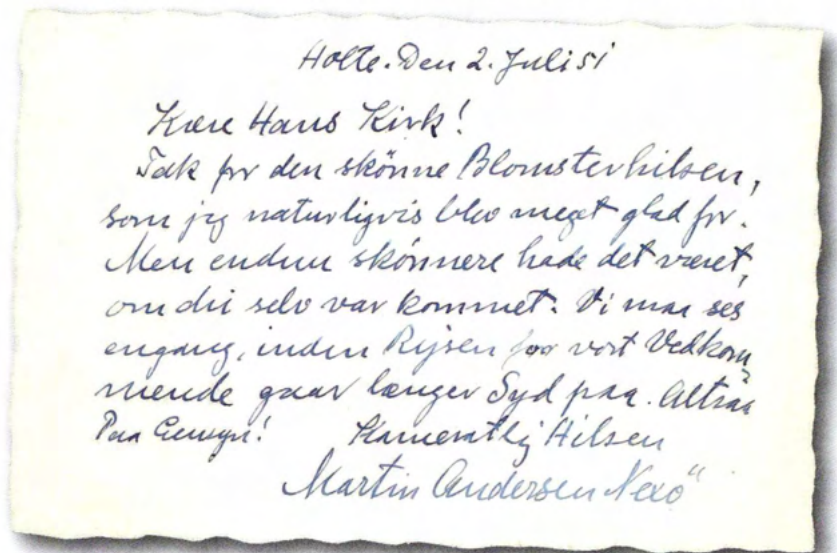 Holte. Den 2. Juli 51
Kære Hans Kirk!
Tak for den skönne Blomsterhilsen,
som jeg naturligvis blev meget glad for.
Men endnu skönnere hade det været,
om du selv var kommet. Vi maa ses
engang, inden Rejsen for vort Vedkom-
mende gaar længer Syd paa. Altsaa
Paa Gensyn! Kameratlig Hilsen
Martin Andersen Nexö